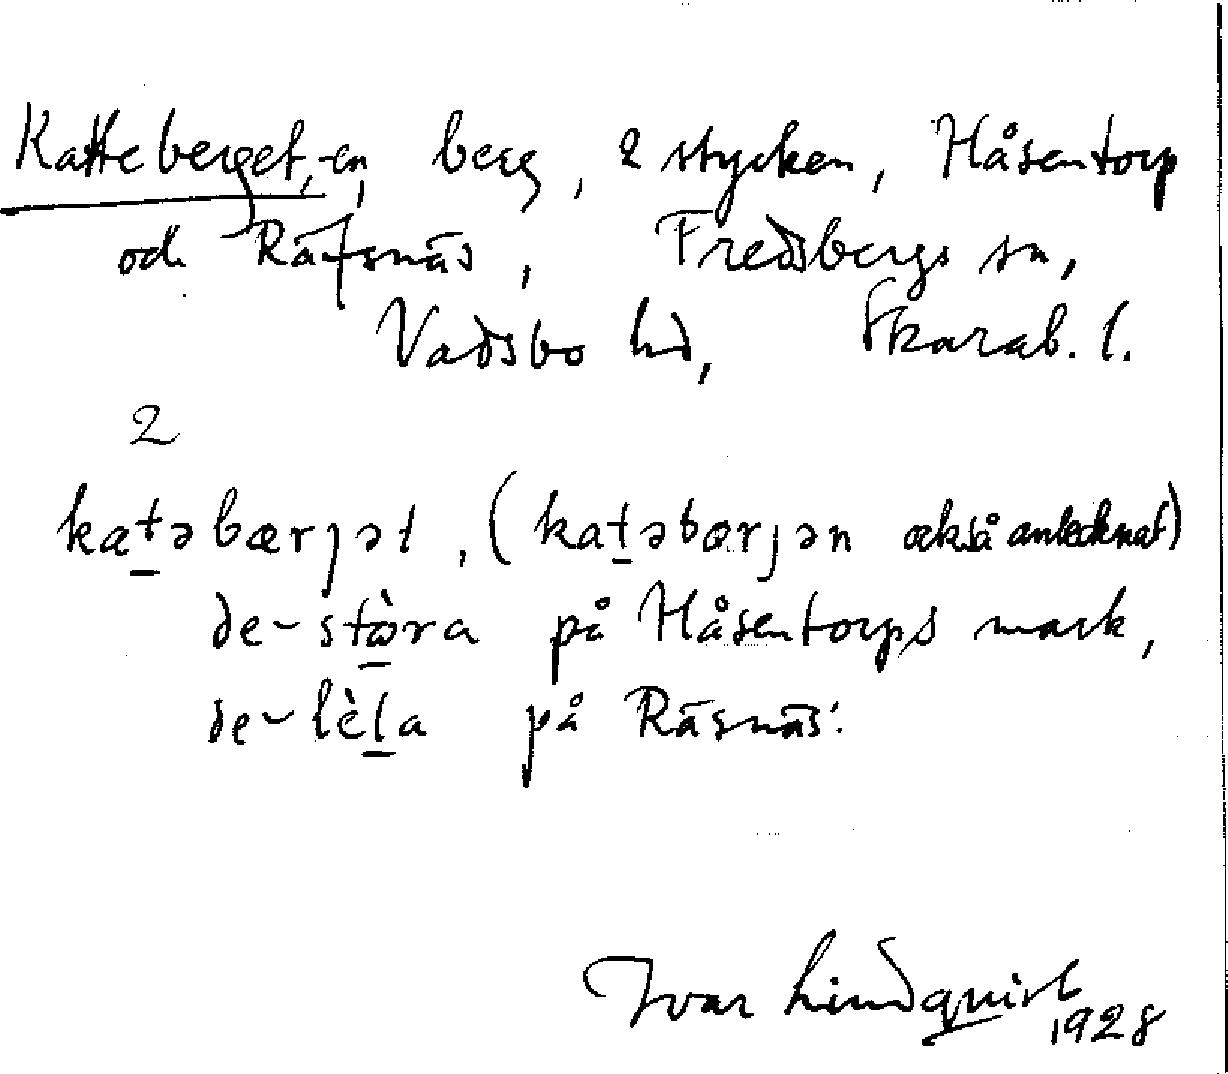 Katteberget, -en, berg, 2 stycken, Håsentorp
och Räfsnäs, Fredsbergs sn,
Vadsbo hd, Skarab. l.
2
kat̲əbærjət, (kat̲əbærjən också antecknat)
de-stò̲ra på Håsentorps mark,
de-lèl̲a på Räsnäs:
Ivar Lindquist
1928